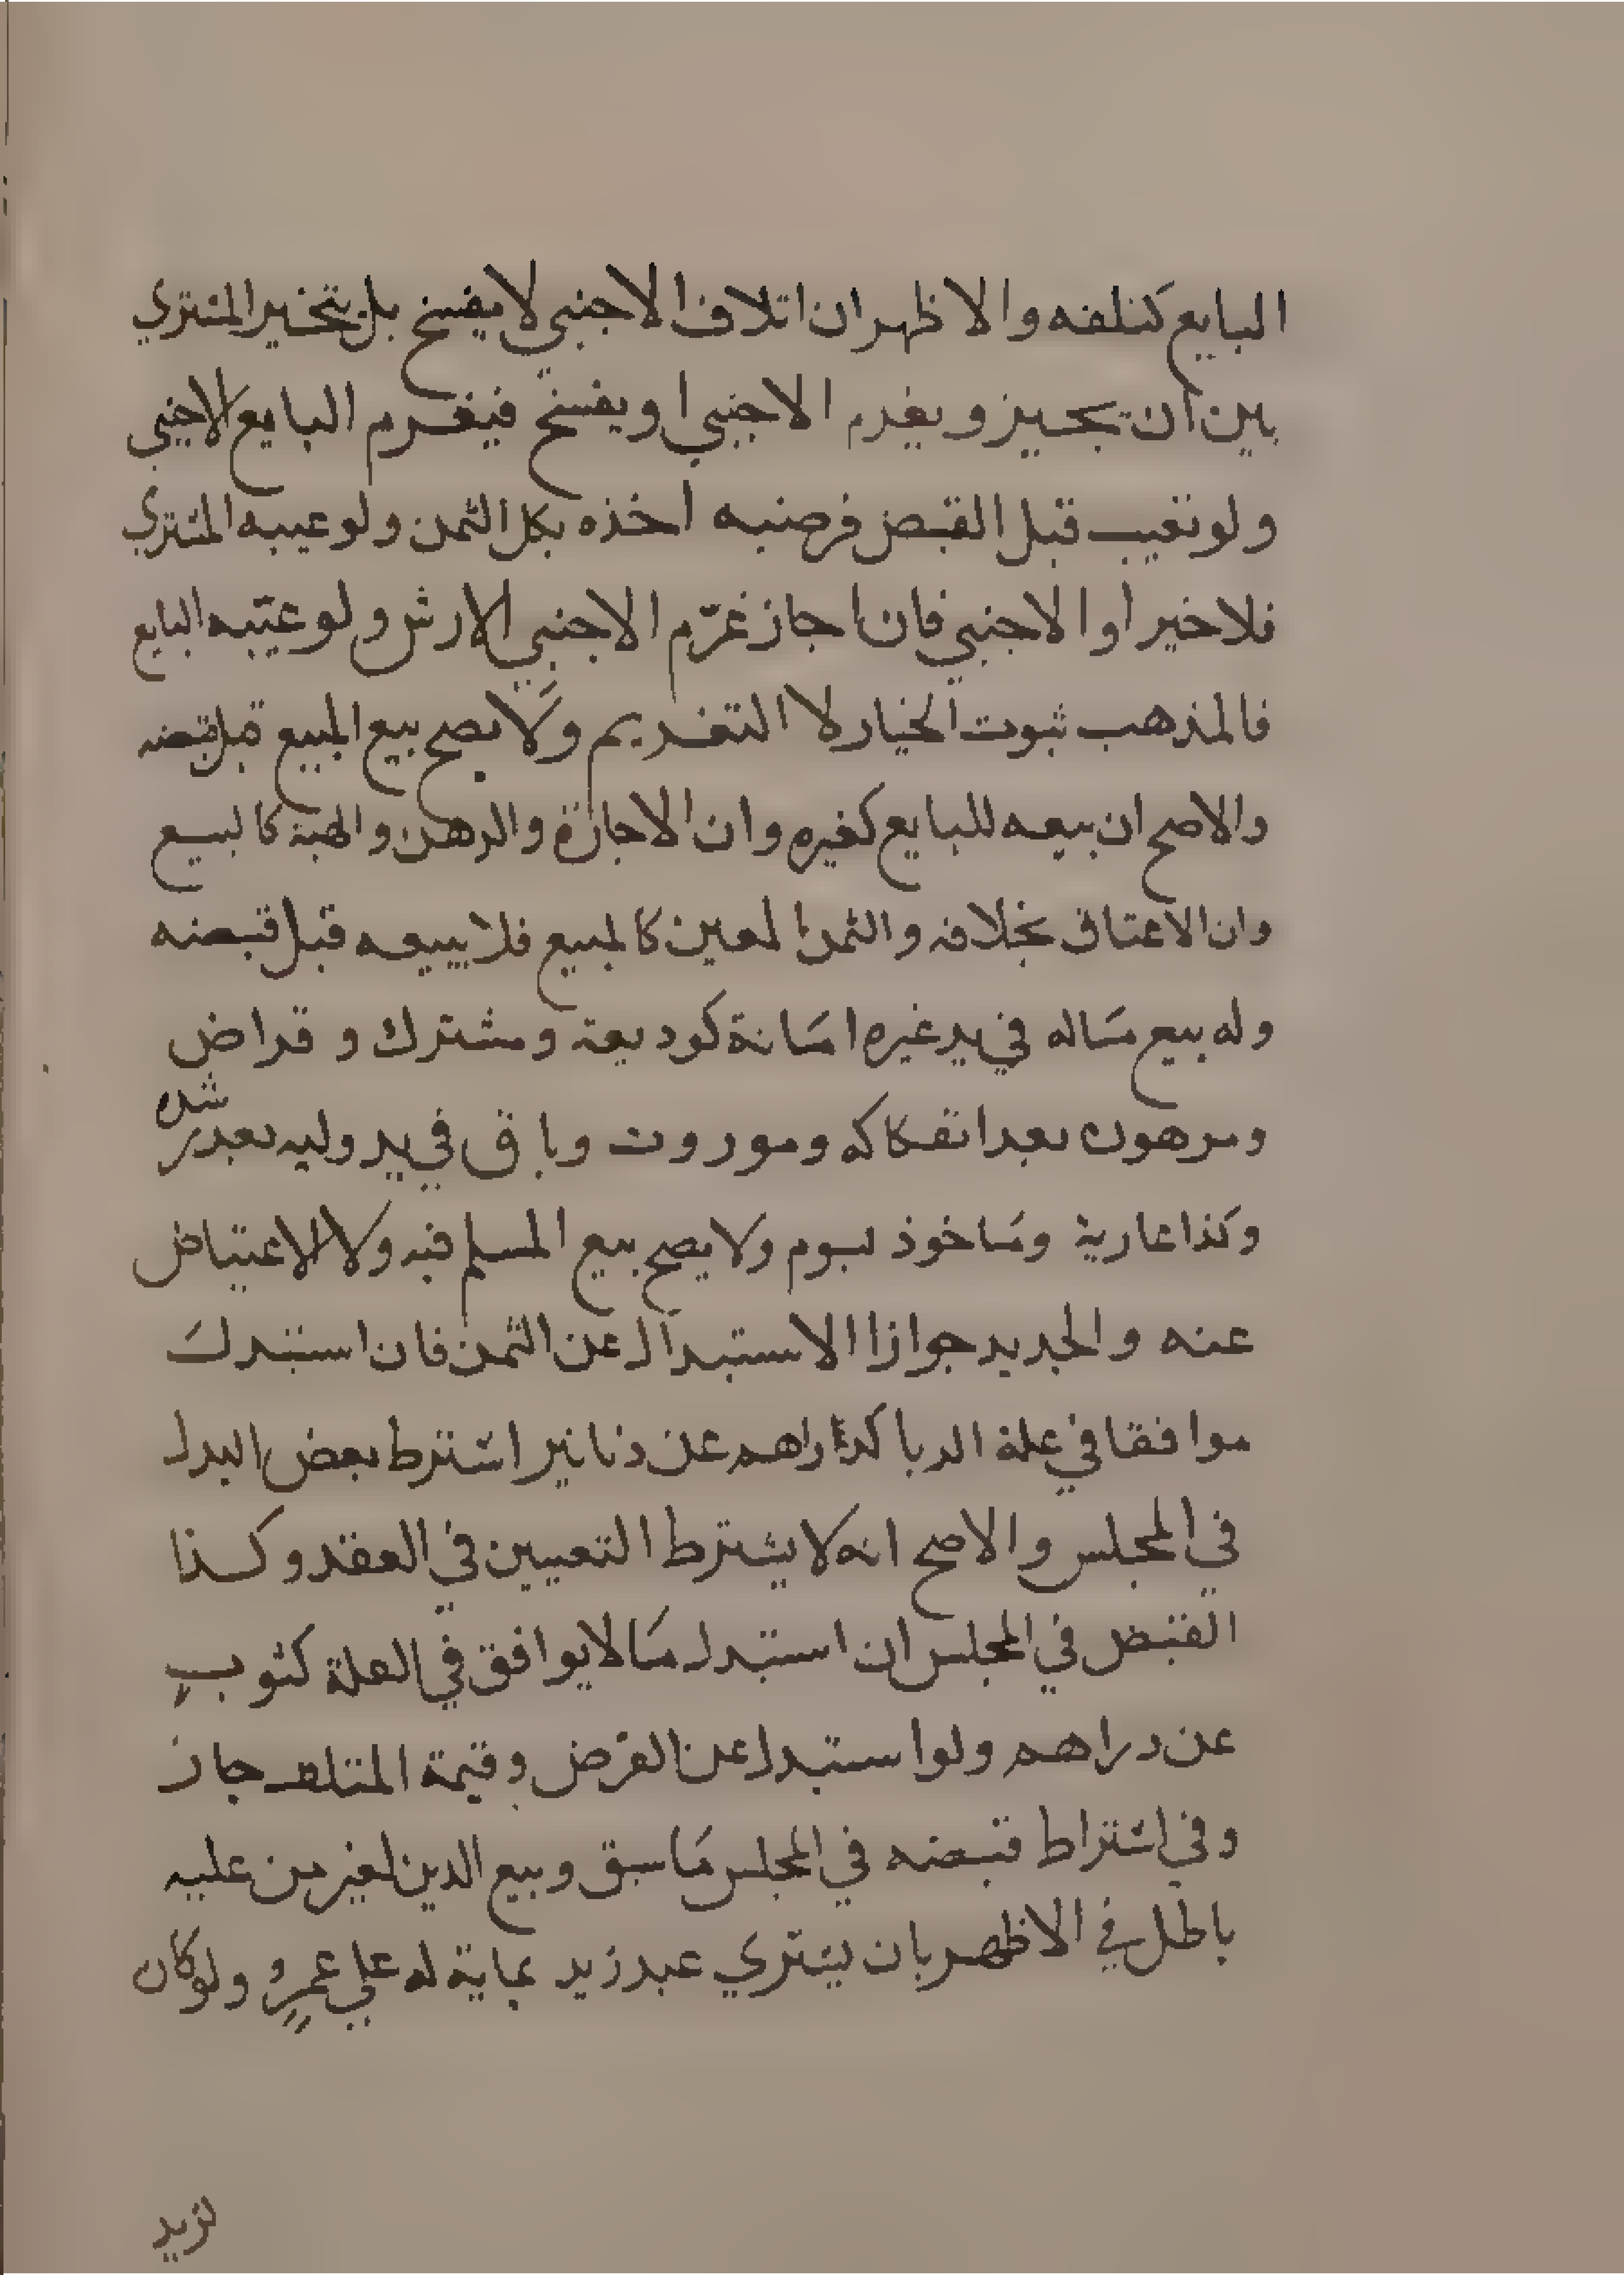 البايع كتلفه والاظهر ان اتلاف الاجنبي لا يفسخ بل يتخير المشتري
بين ان يجيز ويغرم الاجنبي او يفسخ فيغرم البايع الاجنبي
ولو تعيب قبل القبض فرضيه اخذه بكل الثمن ولو عيبه المشتري
فلا خير او الاجنبي فان اجاز غرّم الاجنبي الارش ولو عيّبه البايع
فالمذهب ثبوت الخيار لا التغريم ولا يصح بيع المبيع قبل قبضه
والاصح ان بيعه للبايع كغيره وان الاجارة والرهن والهبة كالبيع
وان الاعتاق بخلافه والثمن المعين كالمبيع فلا يبيعه قبل قبضه
وله بيع مَاله في يد غيره امَانة كوديعة ومشترك وقراض
ومرهون بعد انفكاكه وموروث وباق في يد وليه بعد رشده
وكذا عارية ومَاخوذ بسوم ولا يصح بيع المسلم فيه ولا الاعتياض
عنه والجديد جواز الاستبدال عن الثمن فان استبدل
موافقا في علة الربا كدراهم عن دنانير اشترط بعض البدل
في المجلس والاصح انه لا يشترط التعيين في العقد وكذا
القبض في المجلس ان استبدل مَا لا يوافق في العلة كثوبٍ
عن دراهم ولو استبدل عن القرض وقيمة المتلف جاز
وفي اشتراط قبضه في المجلس مَا سبق وبيع الدين لغير من عليه
باطل في الاظهر بان يشتري عبد زيد بماية له علي عمرٍو ولو كان
لزيد